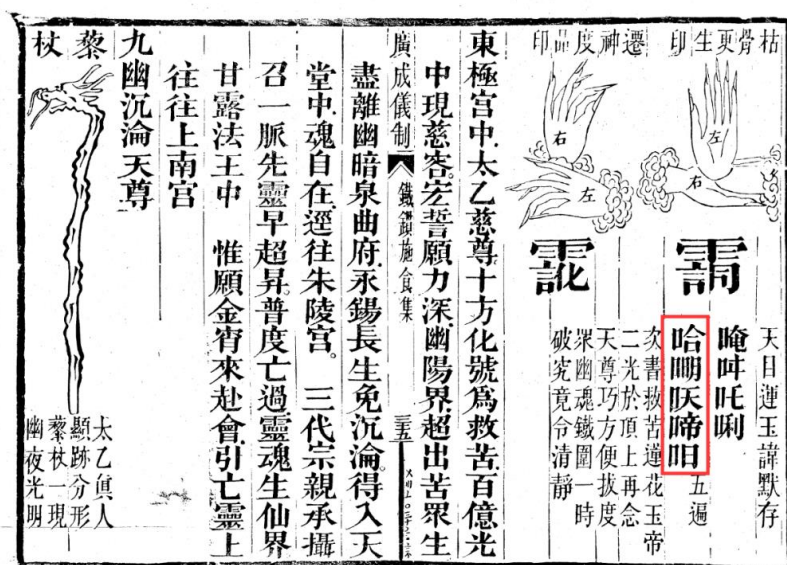 枯骨更生印
左
右
遷神度品印
右
左
天目運玉諱默存
唵吽吒唎
哈啼五遍
次書救苦蓮花玉帝
二光於頂上再念
天尊巧方便拔度
衆幽魂鐵圍一時
破究竟令清靜
東極宫中太乙慈尊十方化號爲救苦百億光
中現慈容。宏誓願力深幽陽界超出苦衆生
廣成儀制 鐵鎖施食集 三五
盡離幽暗泉曲府永錫長生免沉淪。得入天
堂中魂自在逕往朱陵宫。 三代宗親承攝
召一脈先靈早超昇普度亡過靈魂生仙界
甘露法王中 惟願金宵來赴會引亡靈上
往往上南宫
九幽沉淪天尊
藜杖
太乙眞人
顯跡分形
藜杖一現
幽夜光明